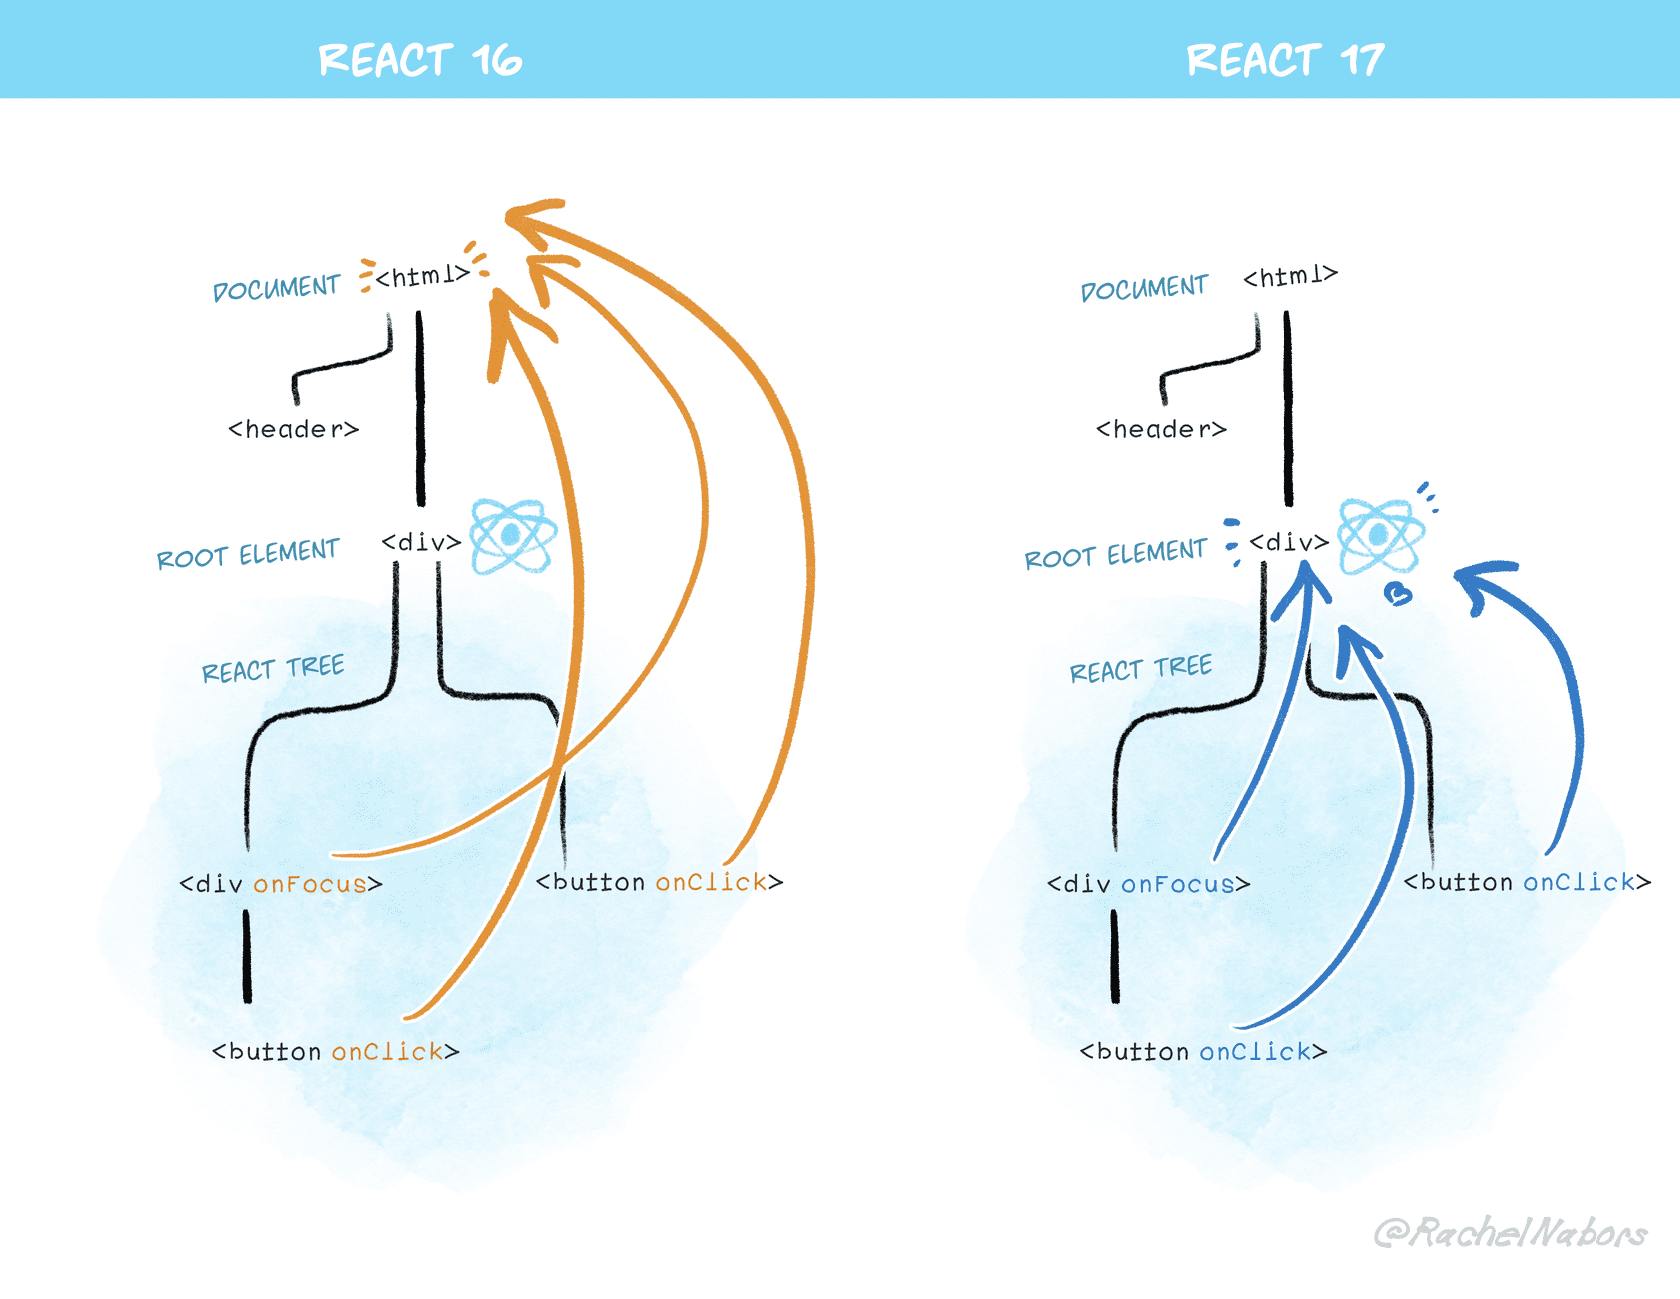 REACT 16
DOCUMENT <html>
<header>
ROOT ELEMENT <div>
REACT TREE
<div onFocus>
<button onClick>
<button onClick>
REACT 17
DOCUMENT <html>
<header>
ROOT ELEMENT <div>
REACT TREE
<div onFocus>
<button onClick>
<button onClick>
@RachelNabors